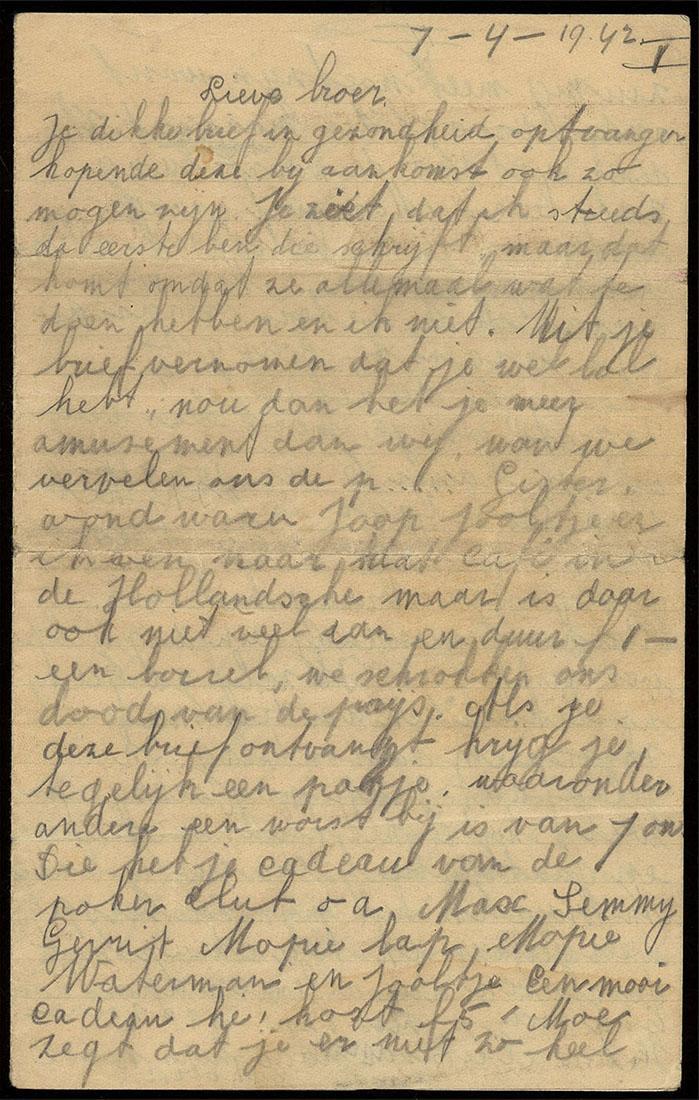 7 - 4 - 19.42.
I
Lieve broer.
Je dikke brief in gezondheid optvangen
hopende deze bij aankomst ook zo
mogen zijn. Je ziet, dat ik steeds
de eerste ben die schrijft, maar dat
komt omdat ze allemaal wat te
doen hebben en ik niet. Uit je
brief vernomen dat je wel lol
hebt, nou dan heb je meer
amusement dan wij, want we
vervelen ons de p..... Gister,
avond waren Joop Jooltje en
ik even naar Kat Café in
de Hollandsche maar is daar
ook niet veel aan en duur f 1 -
een borrel, we schrokken ons
dood van de prijs. Als je
deze brief ontvangt krijg je,
tegelijk een pakje, waaronder
andere een worst bij is van 7 on
Die heb je cadeau van de
poker club o a Max Semmy
Gerrit Mopie lap, Mopie
Waterman en Jooltje Een mooi
cadeau hé! kost f 5 ' Moe
zegt dat je er niet zo heel